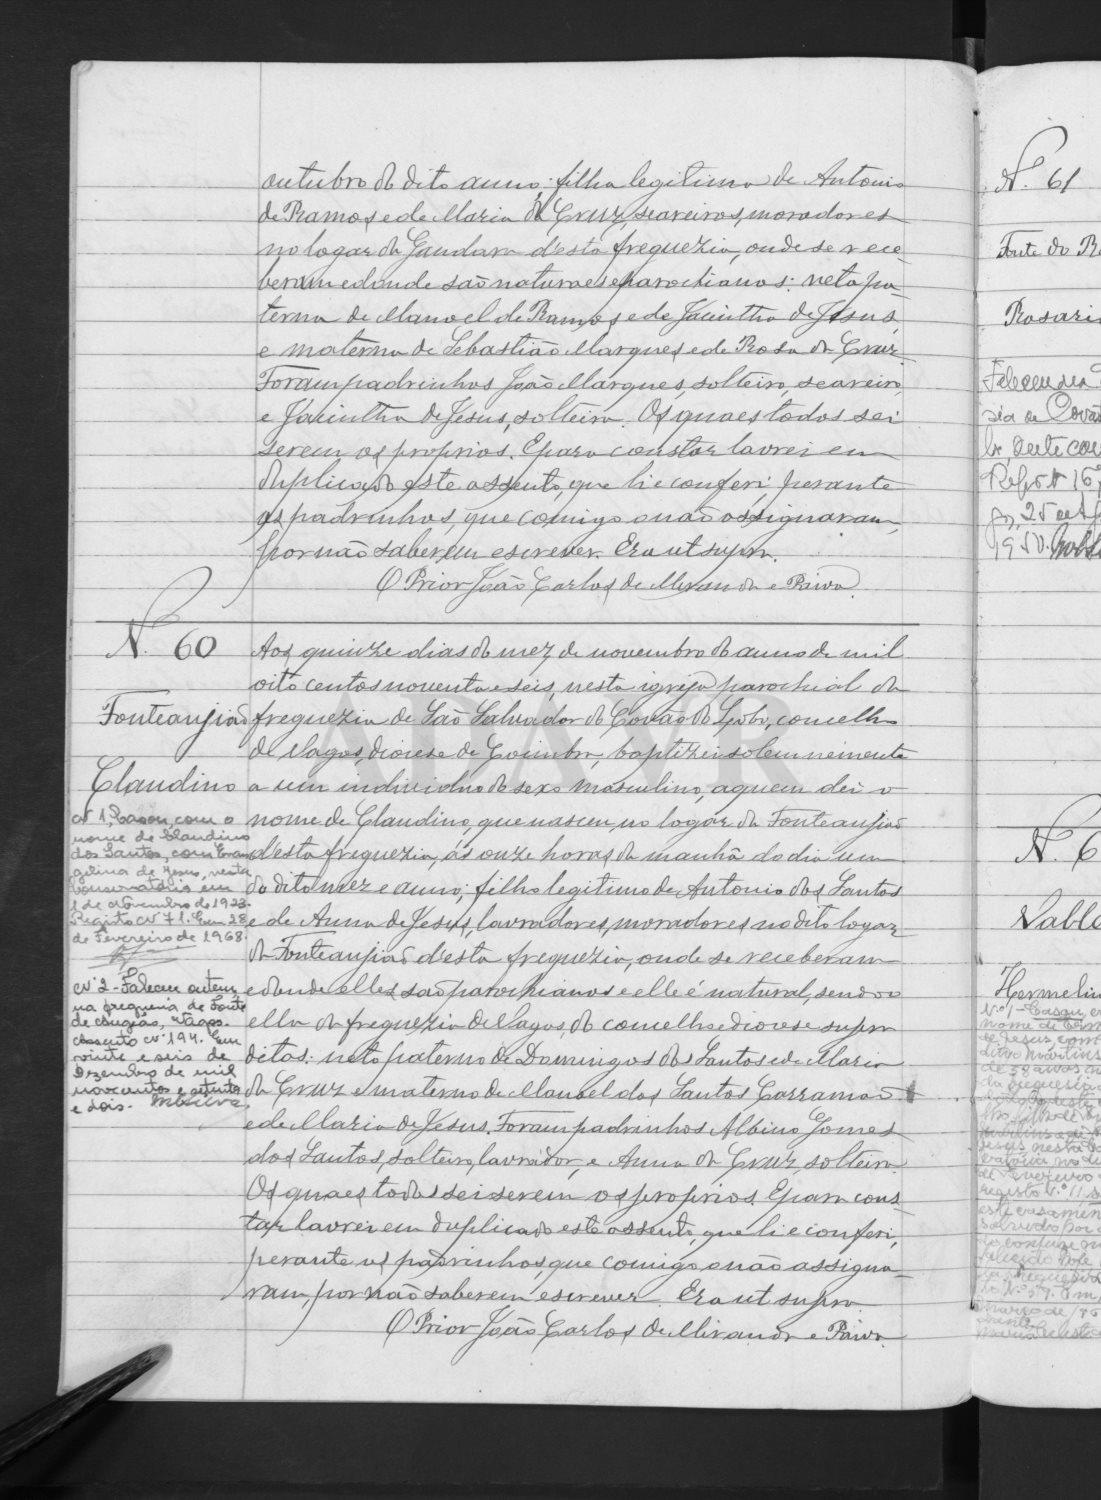 outubro do dito anno; filha legitima de Antonio
de Ramos e de Maria da Cruz, seareiros, moradores
no logar da Gandara d'esta freguezia, onde se rece-
beram e donde são naturaes e parochianos: neta pa-
terna de Manoel de Ramos e de Jacintha de Jesus,
e materna de Sebastião Marques e de Rosa da Cruz.
Foram padrinhos João Marques, solteiro, seareiro,
e Jacintha de Jesus, solteira. Os quaes todos sei
serem os proprios. E para constar lavrei em
duplicado este assento, que li e conferi perante
os padrinhos, que comigo o não assignaram,
por não saberem escrever. Era ut supra.
O Prior João Carlos de Miranda e Paiva.
N. 60
Fonteanjião
Claudino
Nº 1, Casou com o
nome de Claudino
dos Santos, com Evan
gelina de Jesus, nesta
Conservatória em
1 de Novembro de 1923.
Registo Nº 71. Em 28
de Fevereiro de 1968.
Nº 2 - Faleceu ontem,
na freguesia de Fonte
de Angião, Vagos.
Assento Nº 194. Em
vinte e seis de
Dezembro de mil
novecentos e setenta
e dois.
Aos quinze dias do mez de novembro do anno de mil
oito centos noventa e seis, nesta igreja parochial da
freguezia de São Salvador do Covão do Lobo, concelho
de Vagos, diocese de Coimbra, baptizei solemnemente
a um individuo do sexo masculino, a quem dei o
nome de Claudino, que nasceu, no logar da Fonteanjião
d'esta freguezia, ás onze horas da manhã do dia um
do dito mez e anno; filho legitimo de Antonio dos Santos
e de Anna de Jesus, lavradores, moradores no dito logar
da Fonteanjião d'esta freguezia, onde se receberam
e donde elles são parochianos e elle é natural, sendo o
ella da freguezia de Vagos, do concelho e diocese supra
ditos: neto paterno de Domingos dos Santos e de Maria
da Cruz e materno de Manoel dos Santos Carramão
e de Maria de Jesus. Foram padrinhos Albino Gomes
dos Santos, solteiro, lavrador, e Anna da Cruz, solteira.
Os quaes todos sei serem os proprios. E para cons-
tar lavrei em duplicado este assento, que li e conferi,
perante os padrinhos, que comigo o não assigna-
ram, por não saberem escrever. Era ut supra.
O Prior João Carlos de Miranda e Paiva.
N. 61
Fonte do
Rosari
Faleceu
1950.
N. 6
Hermelin